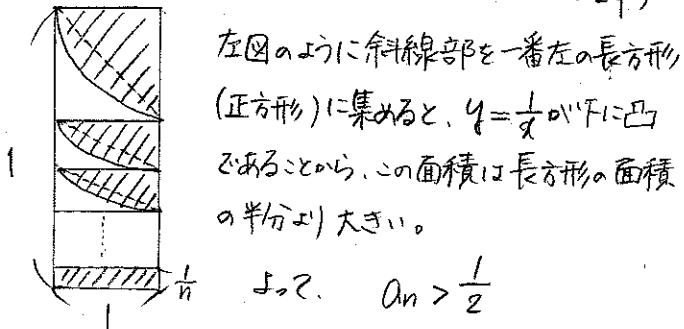 左図のように斜線部を一番左の長方形
(正方形)に集めると、y=1/xが下に凸
であることから、この面積は長方形の面積
の半分より大きい。
よって、 an > 1/2
1
1/n
1